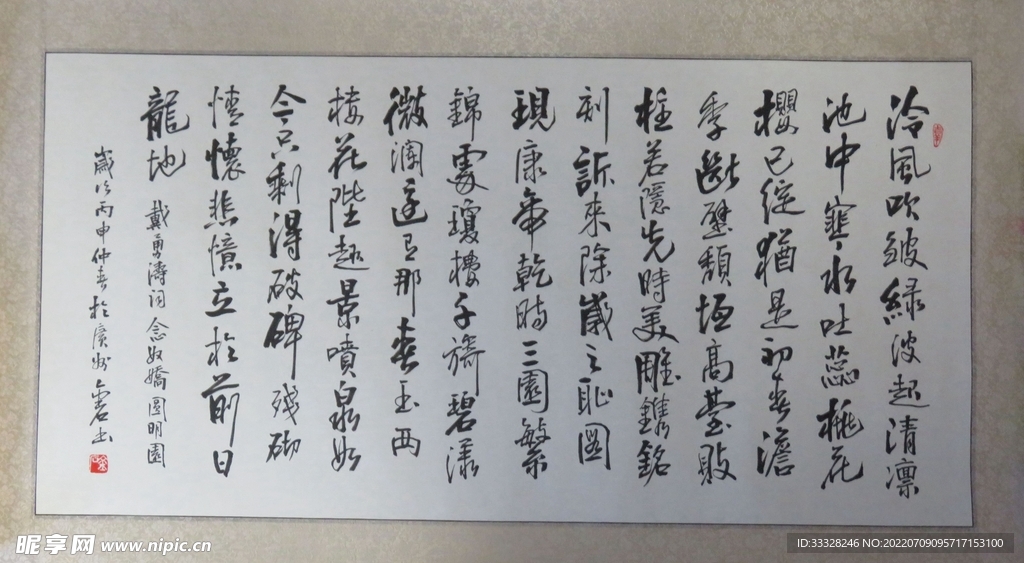 冷風吹皱緑波起清凛
池中寒水吐蕊桃花
櫻已綻猶是初春澹
季斷壁頹垣高臺敗
柱若隱先時美雕鐫銘
刻訴來除歲之恥圆
現康乾時三園繁
錦處瓊樓千旖碧漾
微瀾還有那春玉两
樓花陛超景噴泉如
今只剩得破碑残砌
情懷悲憶立於前日
龍地
戴勇濤词念奴嬌圆明園
歲次丙申仲春於廣州書
昵享网 www.nipic.cn
ID:33328246 NO:20220709095717153100